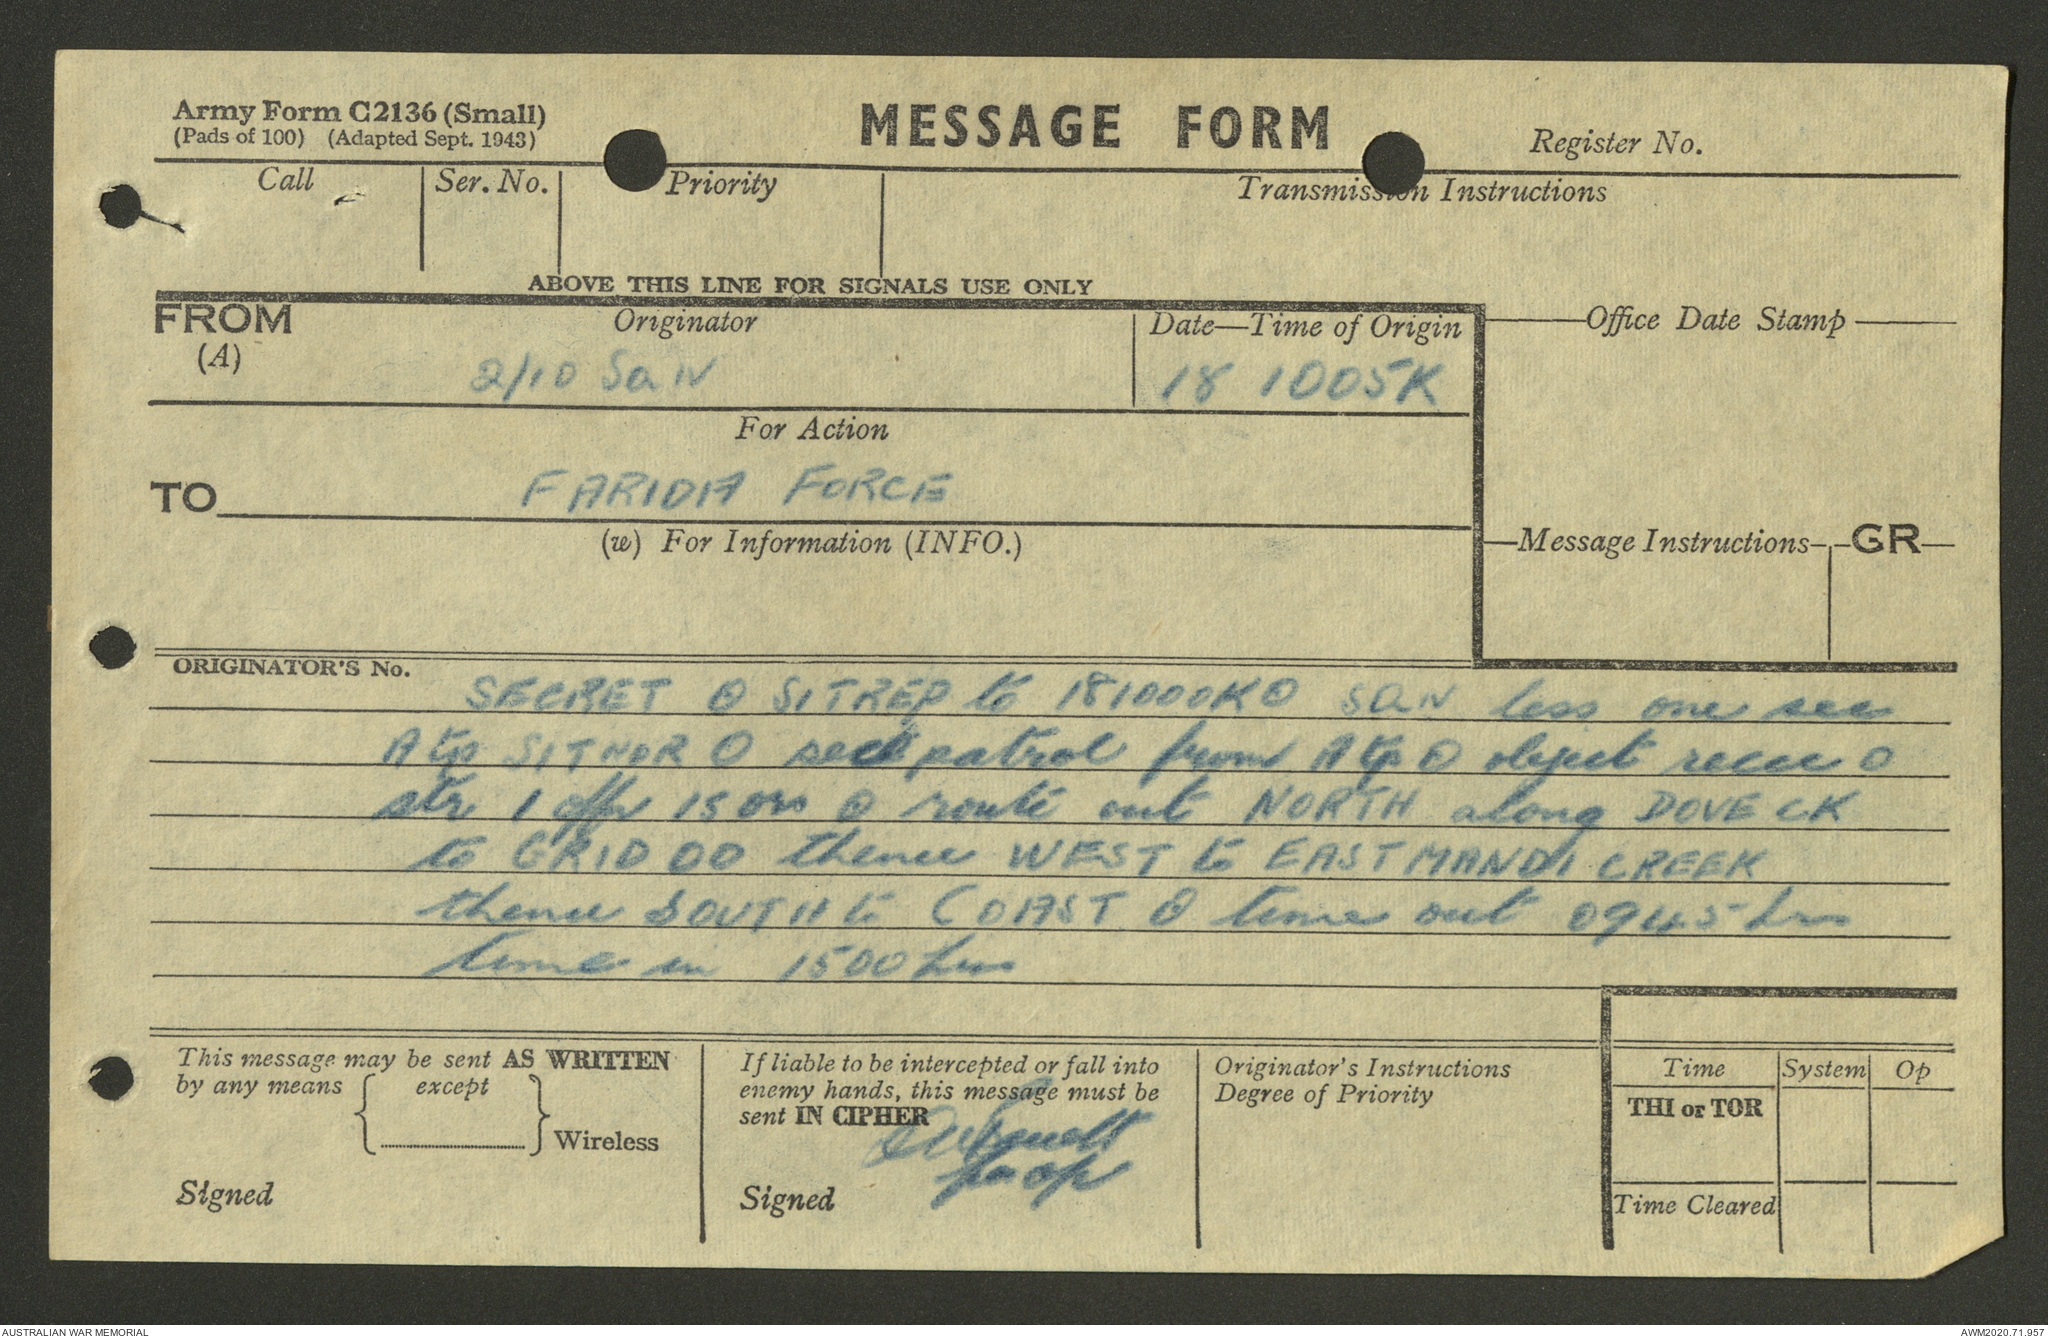 Army Form C2136 (Small)
(Pads of 100) (Adapted Sept. 1943)
MESSAGE FORM
Register No.
Call
Ser. No.
Priority
Transmission Instructions
ABOVE THIS LINE FOR SIGNALS USE ONLY
FROM
(A)
Originator
2/10 SQN
Date—Time of Origin
18 1005K
Office Date Stamp
For Action
TO
FARIDA FORCE
(w) For Information (INFO.)
Message Instructions
GR
ORIGINATOR'S No.
SECRET O SITREP to 181000K O SQN less one sec
A tp SITNOR O sec patrol from A tp O object recce O
str 1 offr 15 ors O route out NORTH along DOVE CK
to GRID 00 thence WEST to EAST MANDI CREEK
thence SOUTH to COAST O time out 0945 hrs
time in 1500 hrs
This message may be sent AS WRITTEN
by any means { except } Wireless
Signed
If liable to be intercepted or fall into
enemy hands, this message must be
sent IN CIPHER
Signed
Originator's Instructions
Degree of Priority
Time
System
Op
THI or TOR
Time Cleared
AUSTRALIAN WAR MEMORIAL
AWM2020.71.957